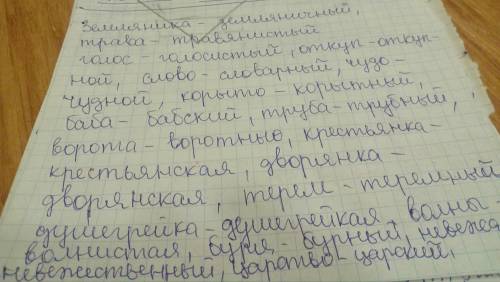 Земляника - земляничный,
трава - травянистый
голос - голосистый, откуп - откуп-
ной, слово - словарный, чудо -
чудной, корыто - корытный,
баба - бабский, труба - трубный,
ворота - воротные, крестьянка -
крестьянская, дворянка -
дворянская, терем - теремный
душегрейка - душегрейкая, волны -
волнистая, буря - бурный, невежа
невежественный, царство - царский.